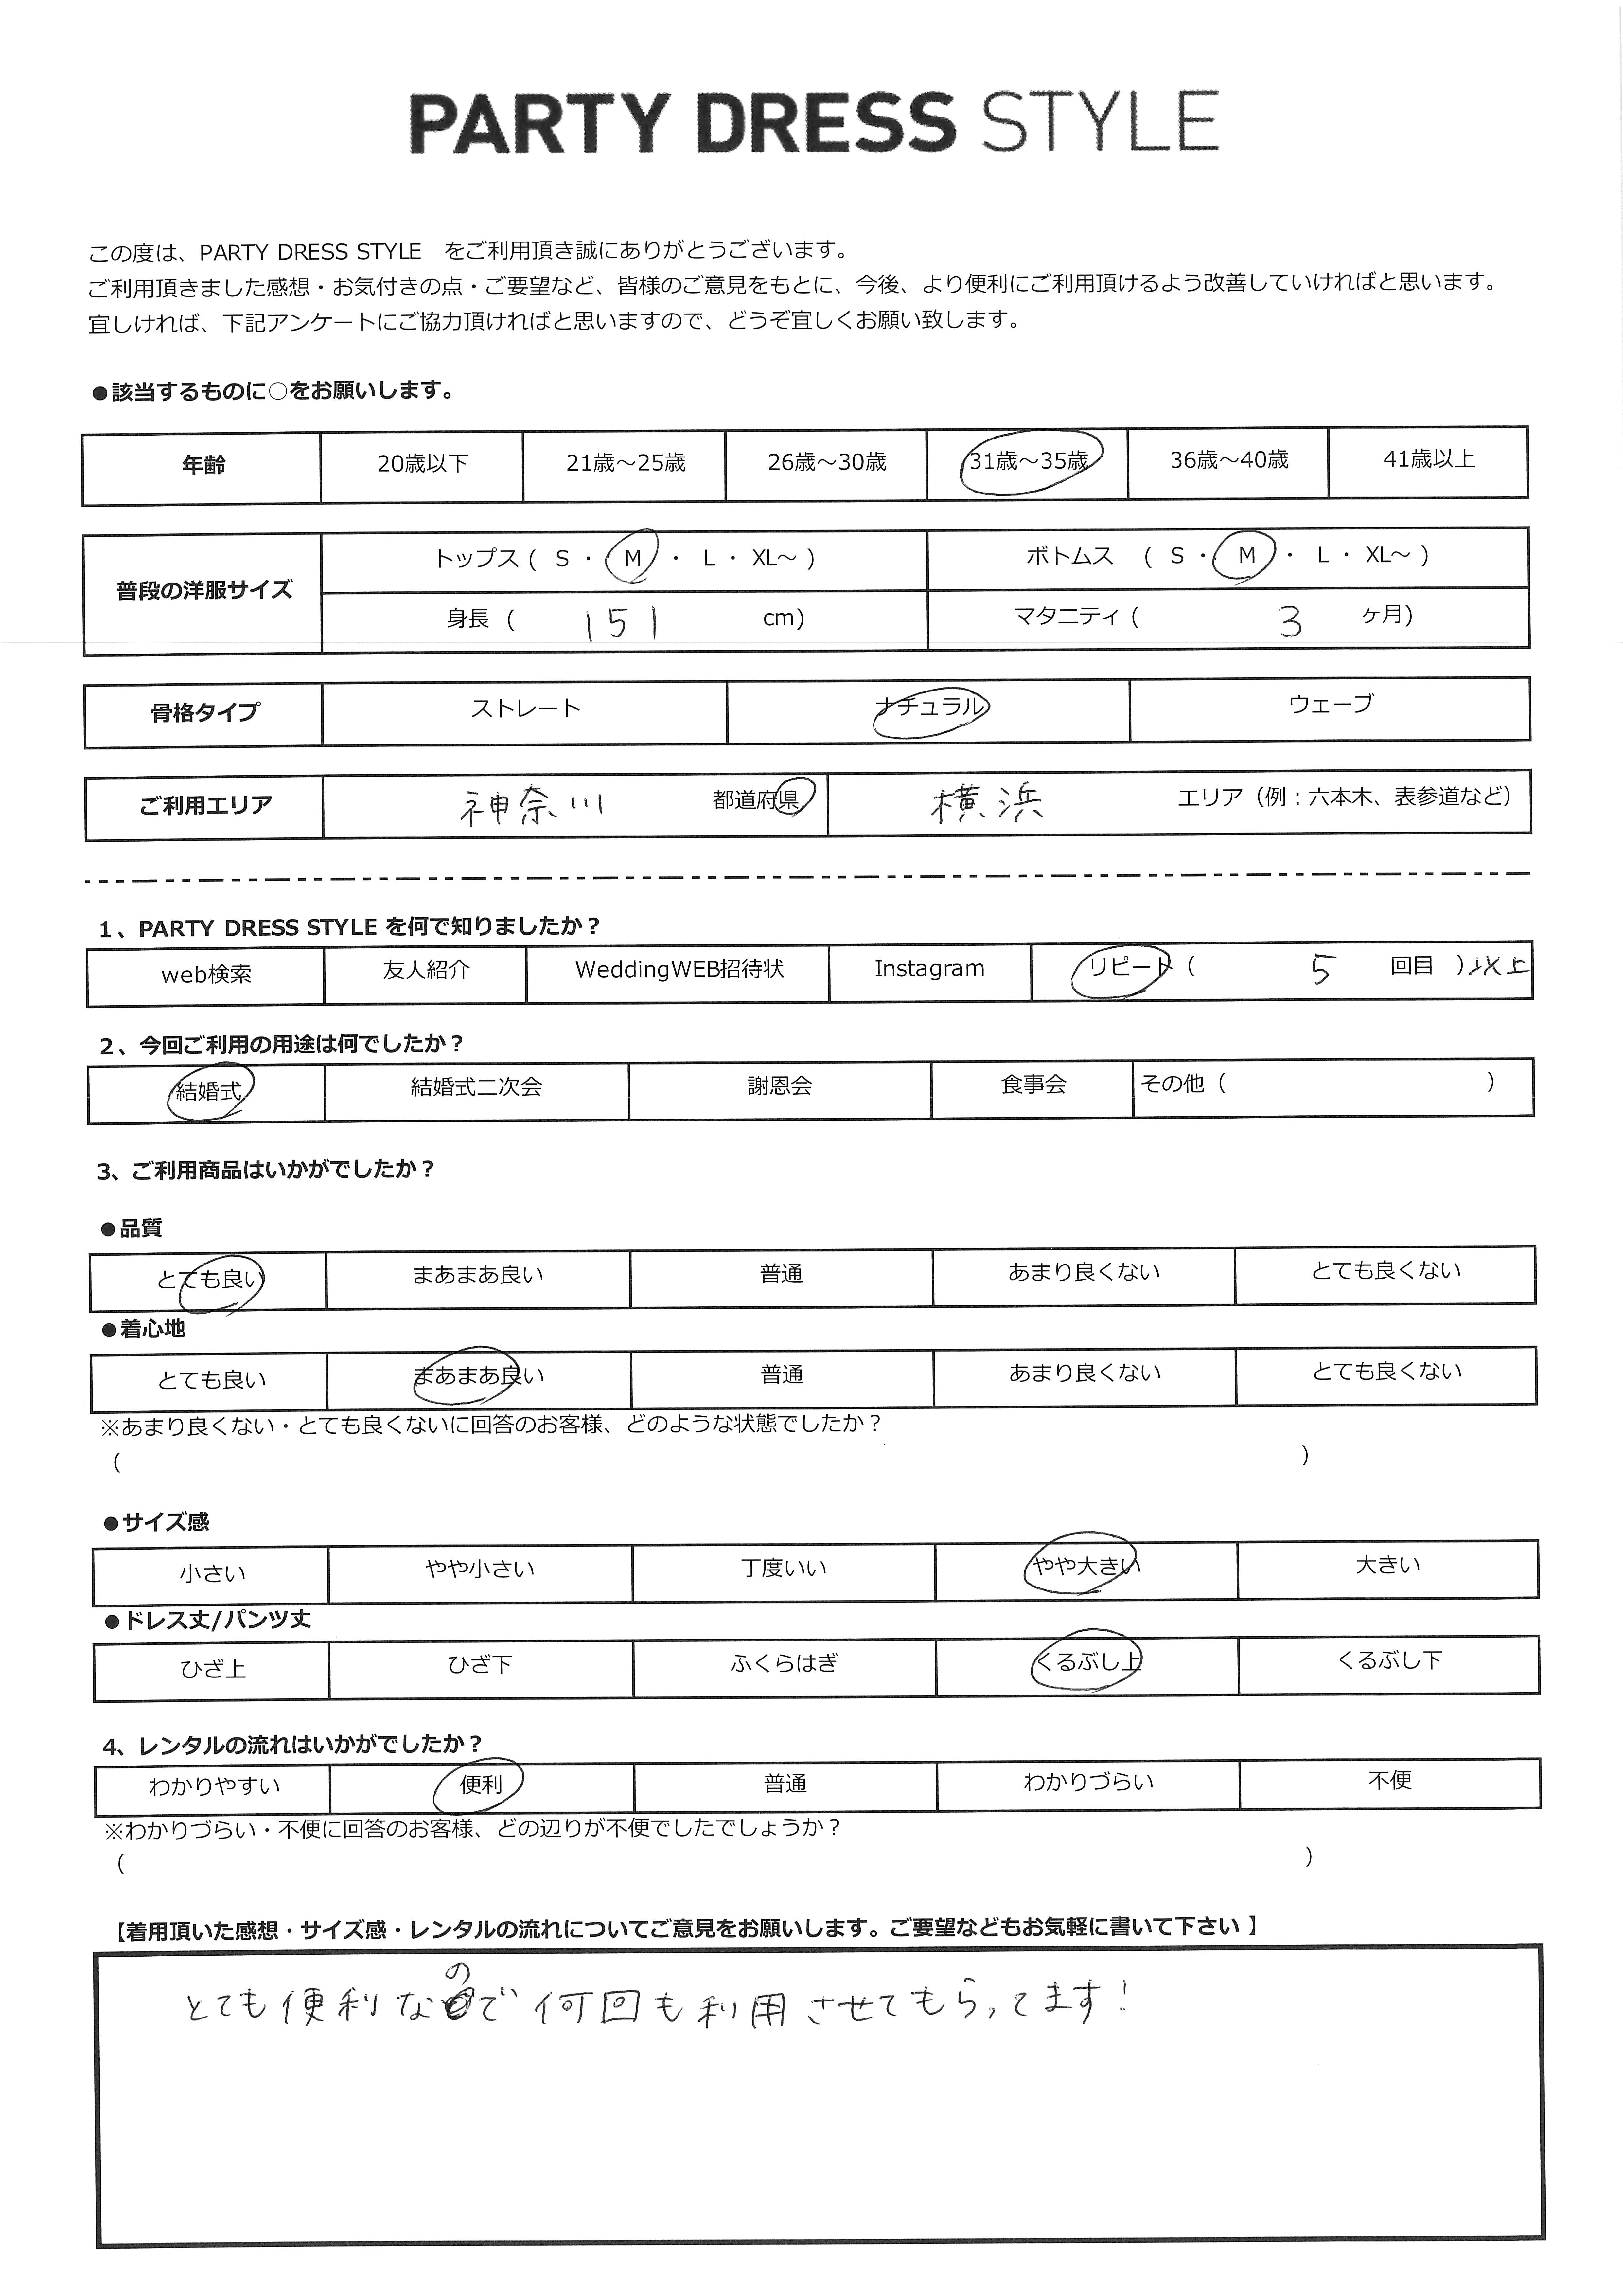 PARTY DRESS STYLE
この度は、PARTY DRESS STYLE　をご利用頂き誠にありがとうございます。
ご利用頂きました感想・お気付きの点・ご要望など、皆様のご意見をもとに、今後、より便利にご利用頂けるよう改善していければと思います。
宜しければ、下記アンケートにご協力頂ければと思いますので、どうぞ宜しくお願い致します。
●該当するものに○をお願いします。
年齢 20歳以下 21歳～25歳 26歳～30歳 31歳～35歳 36歳～40歳 41歳以上
普段の洋服サイズ トップス ( S ・ M ・ L ・ XL～ ) ボトムス ( S ・ M ・ L ・ XL～ )
身長 ( 151 cm) マタニティ ( 3 ヶ月)
骨格タイプ ストレート ナチュラル ウェーブ
ご利用エリア 神奈川 都道府県 横浜 エリア（例：六本木、表参道など）
1、PARTY DRESS STYLE を何で知りましたか？
web検索 友人紹介 WeddingWEB招待状 Instagram リピート ( 5 回目 ) 以上
2、今回ご利用の用途は何でしたか？
結婚式 結婚式二次会 謝恩会 食事会 その他 ( )
3、ご利用商品はいかがでしたか？
●品質
とても良い まあまあ良い 普通 あまり良くない とても良くない
●着心地
とても良い まあまあ良い 普通 あまり良くない とても良くない
※あまり良くない・とても良くないに回答のお客様、どのような状態でしたか？
( )
●サイズ感
小さい やや小さい 丁度いい やや大きい 大きい
●ドレス丈/パンツ丈
ひざ上 ひざ下 ふくらはぎ くるぶし上 くるぶし下
4、レンタルの流れはいかがでしたか？
わかりやすい 便利 普通 わかりづらい 不便
※わかりづらい・不便に回答のお客様、どの辺りが不便でしたでしょうか？
( )
【着用頂いた感想・サイズ感・レンタルの流れについてご意見をお願いします。ご要望などもお気軽に書いて下さい 】
とても便利なので何回も利用させてもらってます！